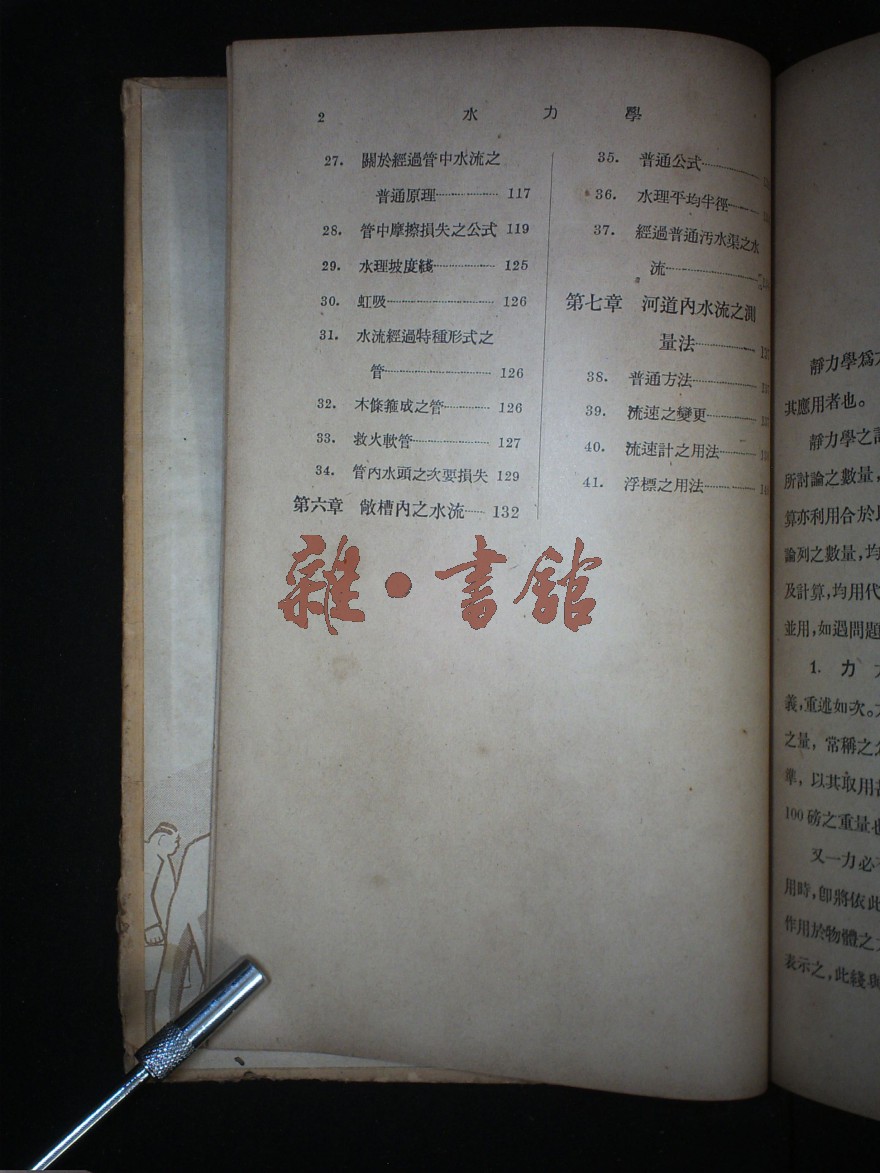 2 水力學
27. 關於經過管中水流之
普通原理 117
28. 管中摩擦損失之公式 119
29. 水理坡度綫 125
30. 虹吸 126
31. 水流經過特種形式之
管 126
32. 木條箍成之管 126
33. 救火軟管 127
34. 管內水頭之次要損失 129
第六章 敞槽內之水流 132
35. 普通公式
36. 水理平均半徑
37. 經過普通汚水渠之水
流
第七章 河道內水流之測
量法
38. 普通方法
39. 流速之變更
40. 流速計之用法
41. 浮標之用法
雜·書館
靜力學爲
其應用者也。
靜力學之
所討論之數量，
算亦利用合於
論列之數量，均
及計算，均用代
並用，如遇問題
1. 力
義，重述如次。
之量，常稱之
準，以其取用
100磅之重量
又一力必
用時，卽將依此
作用於物體之
表示之，此綫與